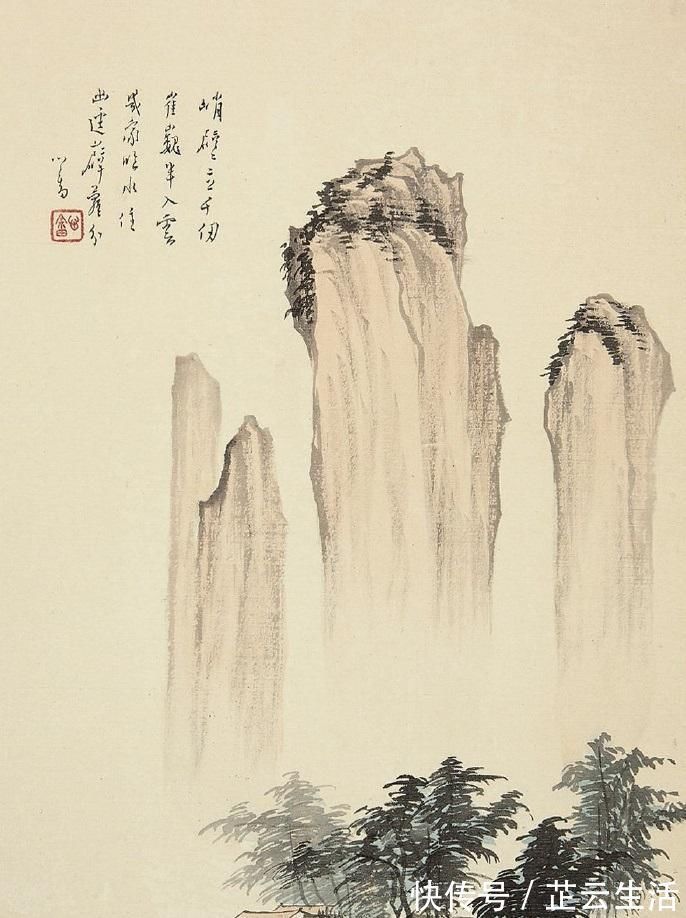 峭壁立千仞
崔巍半入雲
幾家臨水住
幽逕薜蘿分
心畬
快传号 / 芷云生活